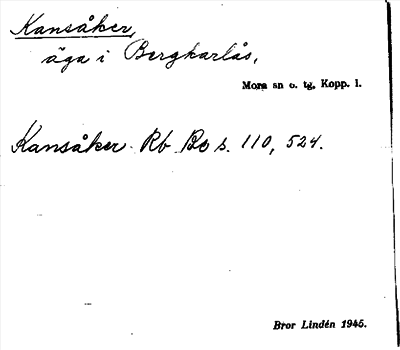 Kansåker,
äga i Bergkarlås,
Mora sn o. tg, Kopp. l.
Kansåker Rb Bo s. 110, 524.
Bror Lindén 1945.